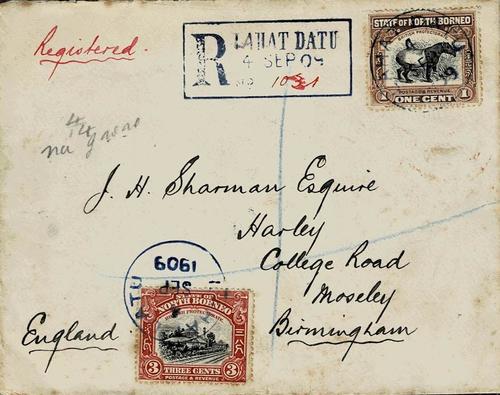 Registered.
R LAHAT DATU
4 SEP 09
No 1051
STATE OF NORTH BORNEO
BRITISH PROTECTORATE
POSTAGE & REVENUE
1 ONE CENT 1
J. H. Sharman Esquire
Harley
College Road
Moseley
Birmingham
England
1909
SEP
ATU
STATE OF
NORTH BORNEO
BRITISH PROTECTORATE
3 THREE CENTS 3
POSTAGE & REVENUE